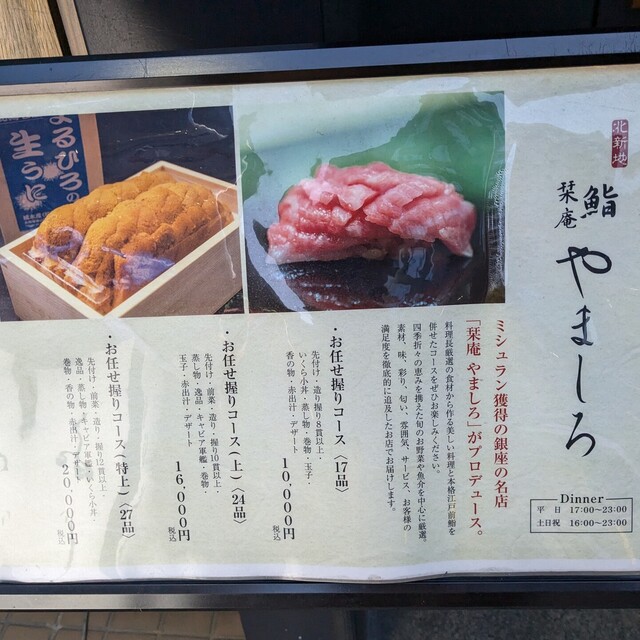 北新地
鮨
栞庵
やましろ
Dinner
平 日 17:00~23:00
土日祝 16:00~23:00
ミシュラン獲得の銀座の名店
「栞庵 やましろ」がプロデュース。
料理長厳選の食材から作る美しい料理と本格江戸前鮨を
併せたコースをぜひお楽しみください。
四季折々の恵みを携えた旬のお野菜や魚介を中心に厳選。
素材、味、彩り、匂い、雰囲気、サービス、お客様の
満足度を徹底的に追及したお店でお届けします。
・お任せ握りコース〈17品〉
先付け・造り握り8貫以上・
いくら小丼・蒸し物・巻物・玉子・
香の物・赤出汁・デザート
10,000円 税込
・お任せ握りコース(上)〈24品〉
先付け・前菜・造り・握り10貫以上・
蒸し物・逸品・キャビア軍艦・巻物・
玉子・赤出汁・デザート
16,000円 税込
・お任せ握りコース(特上)〈27品〉
先付け・前菜・造り・握り12貫以上・
逸品・蒸し物・キャビア軍艦・いくら小丼・
巻物・香の物・赤出汁・デザート
20,000円 税込
まるひろの
生うに